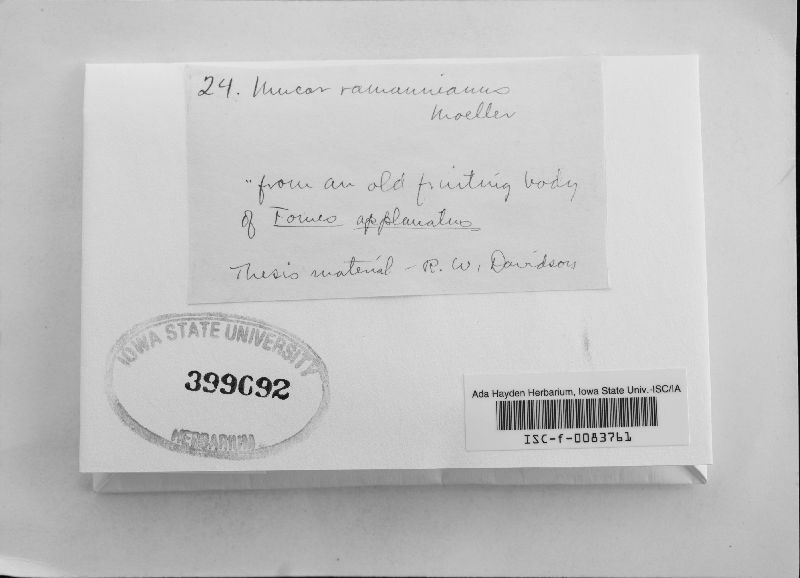 24. Mucor ramannianus
Moeller
"from an old fruiting body
of Fomes applanatus
Thesis material - R. W. Davidson
IOWA STATE UNIVERSITY
399092
HERBARIUM
Ada Hayden Herbarium, Iowa State Univ.-ISC/IA
ISC-f-0083761